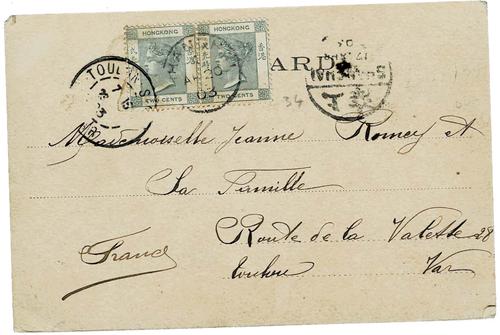 HONGKONG HONGKONG
TWO CENTS TWO CENTS
TOULON
HANKOW
03
CARD
SHANGHAI
34
Mademoiselle Jeanne Romey et
Sa Famille
Route de la Valette 28
France
Toulon Var